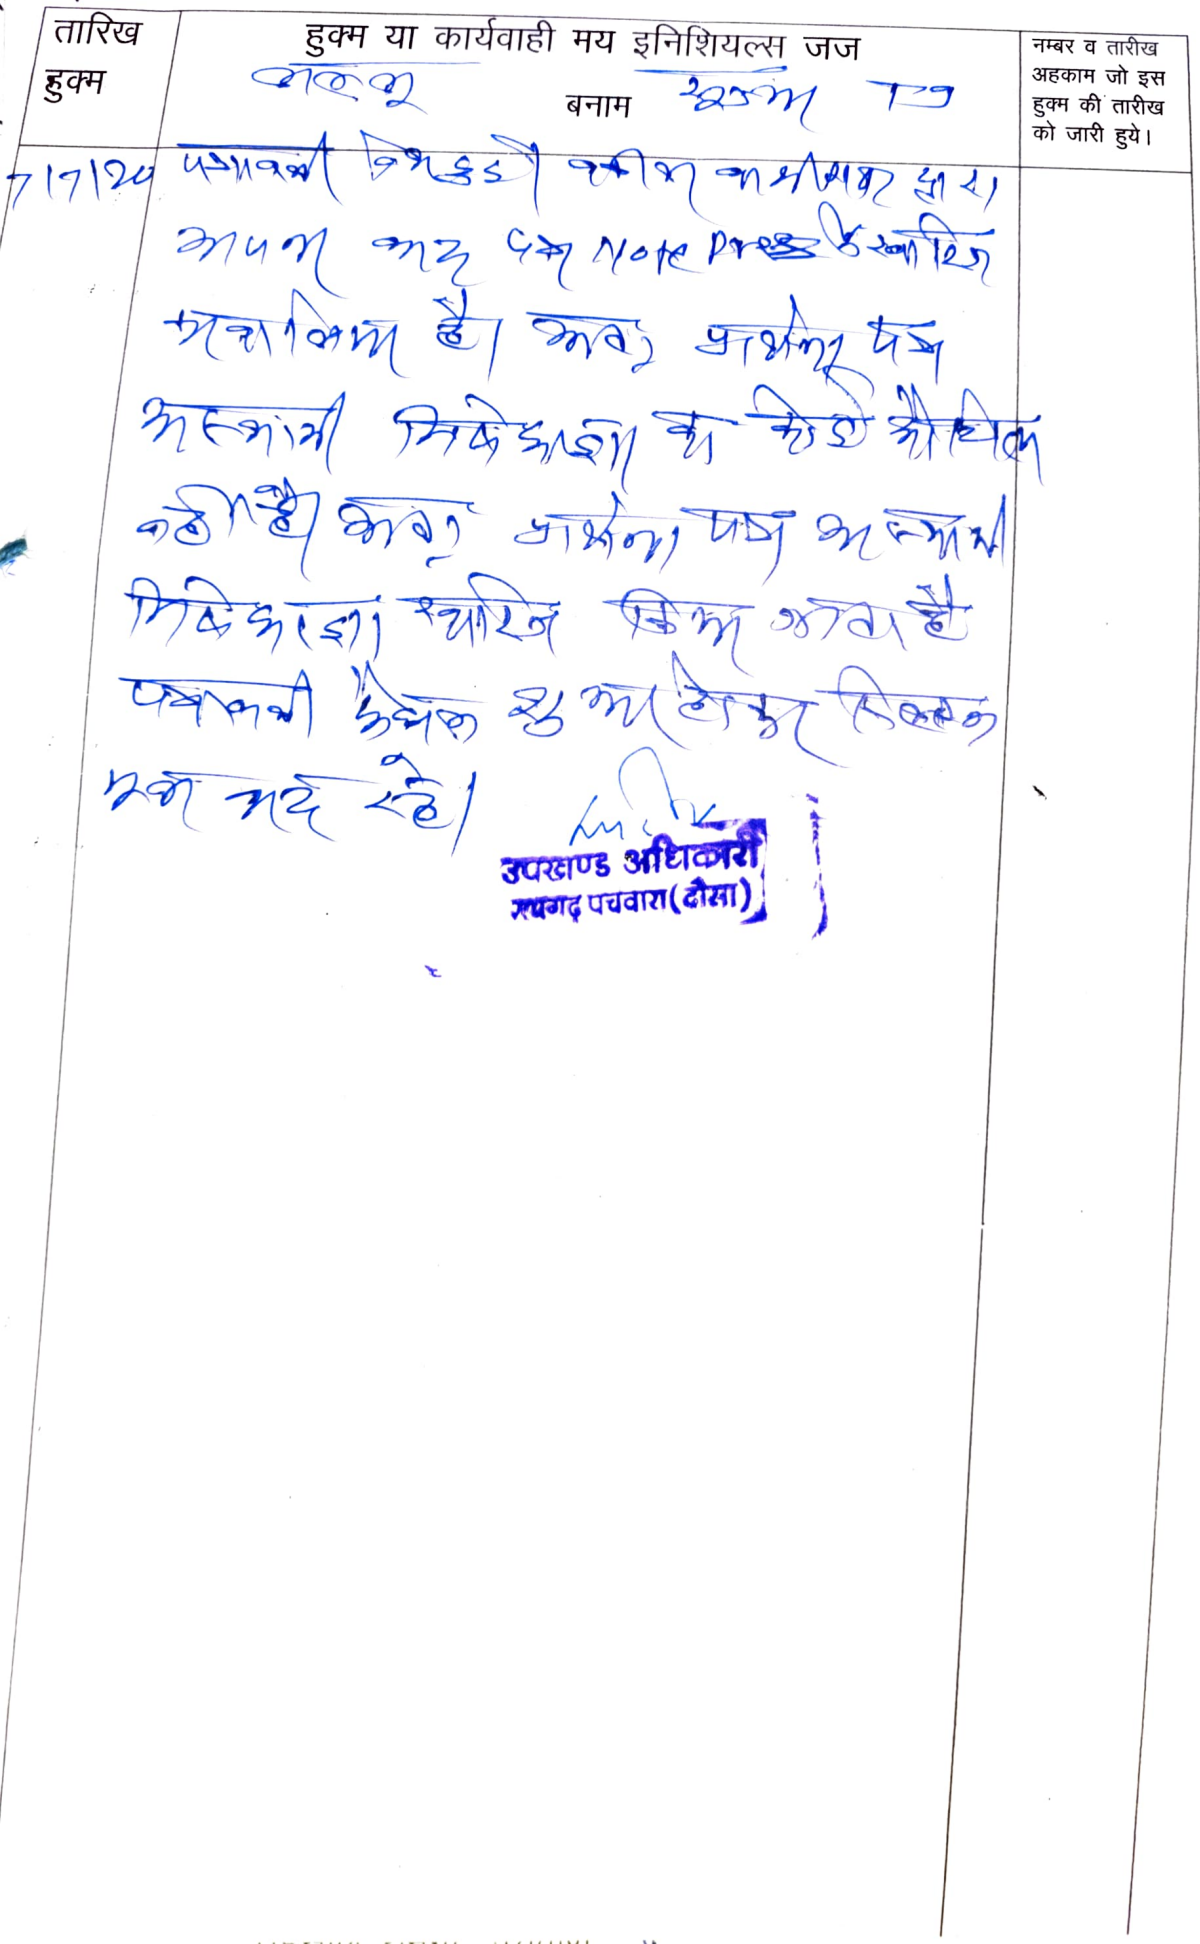 तारिख हुक्म
हुक्म या कार्यवाही मय इनिशियल्स जज
बनाम TI
नम्बर व तारीख
अहकाम जो इस
हुक्म की तारीख
को जारी हुये।
7/7/20 पत्रावली पेश हुई। वकील द्वारा
अपना वाद पत्र Note Press में खारिज
है। अतः प्रार्थना पत्र
अस्थायी निषेधाज्ञा का कोई औचित्य
नहीं है। अतः प्रार्थना पत्र अस्थायी
निषेधाज्ञा खारिज किया जाता है
पत्रावली फैसल शुमार होकर
रहे।
उपखण्ड अधिकारी
रामगढ़ पचवारा (दौसा)